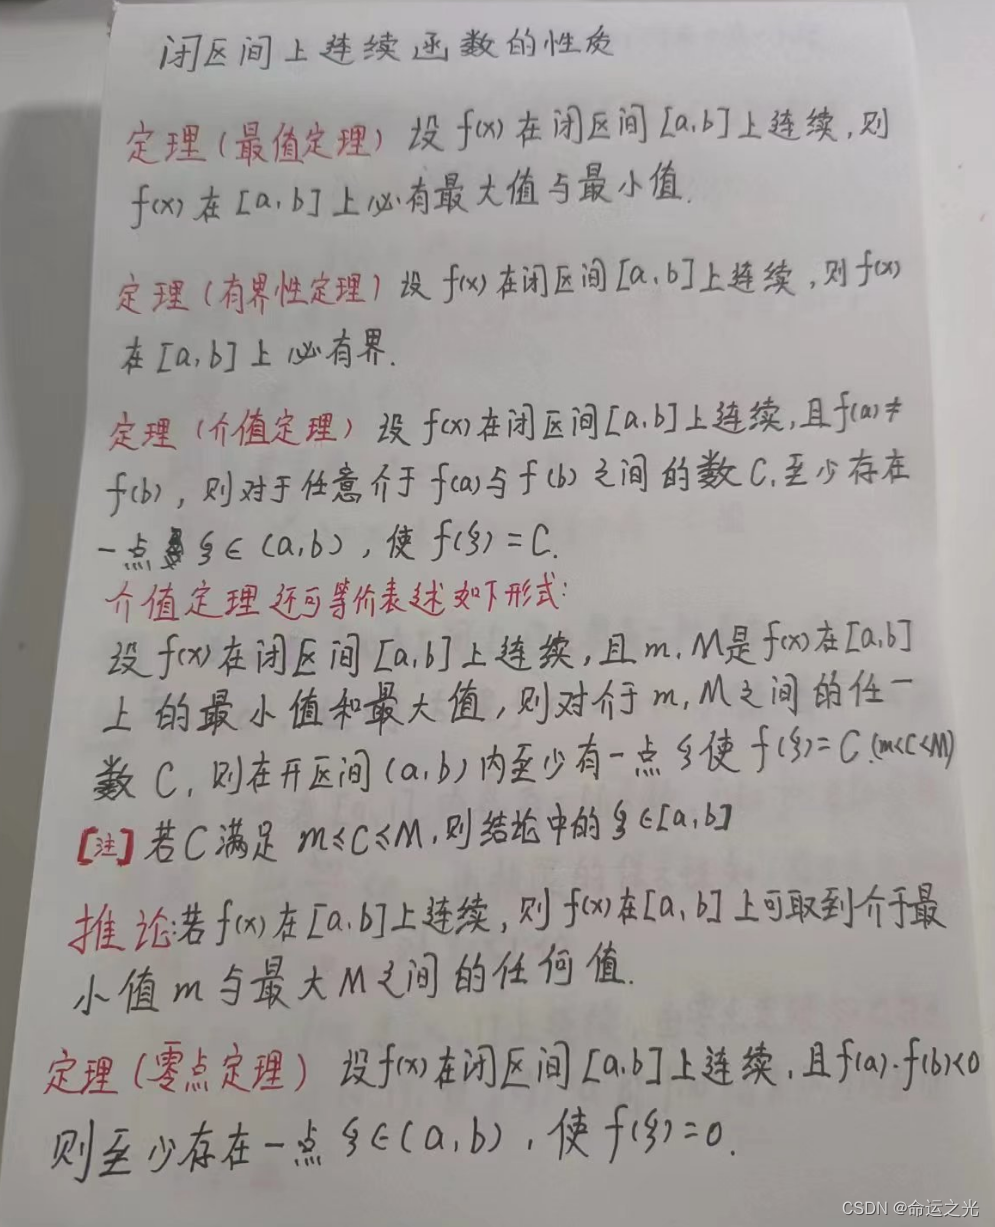 闭区间上连续函数的性质
定理(最值定理) 设 f(x) 在闭区间 [a,b] 上连续,则
f(x) 在 [a,b] 上必有最大值与最小值.
定理(有界性定理) 设 f(x) 在闭区间 [a,b] 上连续,则 f(x)
在 [a,b] 上必有界.
定理(介值定理) 设 f(x) 在闭区间 [a,b] 上连续,且 f(a)≠
f(b),则对于任意介于 f(a) 与 f(b) 之间的数 C,至少存在
一点 ξ∈(a,b),使 f(ξ)=C.
介值定理还可等价表述如下形式:
设 f(x) 在闭区间 [a,b] 上连续,且 m,M 是 f(x) 在 [a,b]
上的最小值和最大值,则对介于 m,M 之间的任一
数 C,则在开区间 (a,b) 内至少有一点 ξ 使 f(ξ)=C.(m<C<M)
[注] 若 C 满足 m≤C≤M,则结论中的 ξ∈[a,b]
推论:若 f(x) 在 [a,b] 上连续,则 f(x) 在 [a,b] 上可取到介于最
小值 m 与最大 M 之间的任何值.
定理(零点定理) 设 f(x) 在闭区间 [a,b] 上连续,且 f(a)·f(b)<0
则至少存在一点 ξ∈(a,b),使 f(ξ)=0.
CSDN @命运之光